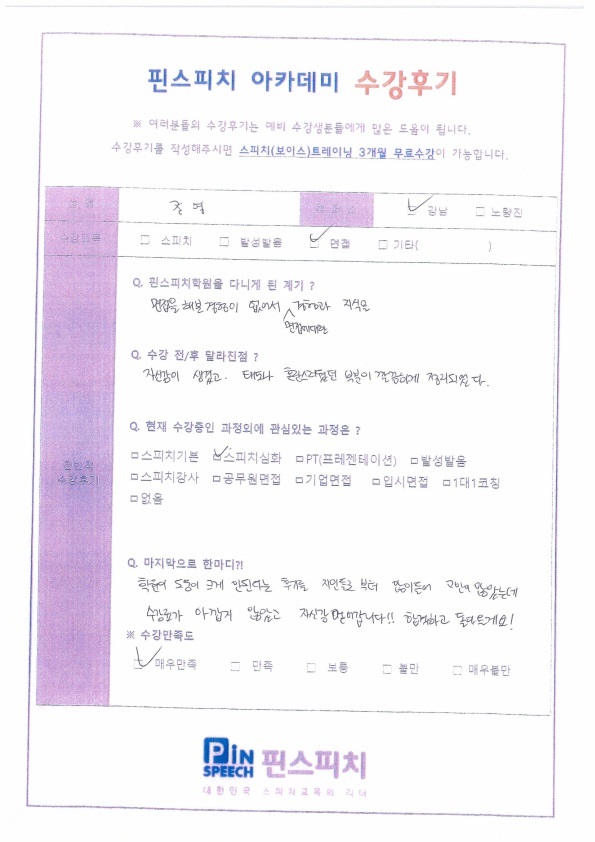 핀스피치 아카데미 수강후기
※ 여러분들의 수강후기는 예비 수강생분들에게 많은 도움이 됩니다.
수강후기를 작성해주시면 스피치(보이스)트레이닝 3개월 무료수강이 가능합니다.
성 명 조 영 캠퍼스 ☑ 강남 □ 노량진
수강과목 □ 스피치 □ 발성발음 ☑ 면접 □ 기타( )
Q. 핀스피치학원을 다니게 된 계기 ?
면접을 해본 경험이 없어서 경험과 지식을
면접에대한
Q. 수강 전/후 달라진점 ?
자신감이 생겼고. 태도나 혼란스러웠던 부분이 깔끔하게 정리되었다.
Q. 현재 수강중인 과정외에 관심있는 과정은 ?
□스피치기본 ☑스피치심화 □PT(프레젠테이션) □발성발음
전반적
수강후기
□스피치강사 □공무원면접 □기업면접 □입시면접 □1대1코칭
□없음
Q. 마지막으로 한마디?!
학원이 도움이 크게 안된다는 후기를 지인들로 부터 많이들어 고민이 많았는데
수강료가 아깝지 않았고 자신감 얻어갑니다!! 합격하고 들러트게요!
※ 수강만족도
☑ 매우만족 □ 만족 □ 보통 □ 불만 □ 매우불만
PiN SPEECH 핀스피치
대한민국 스피치교육의 리더